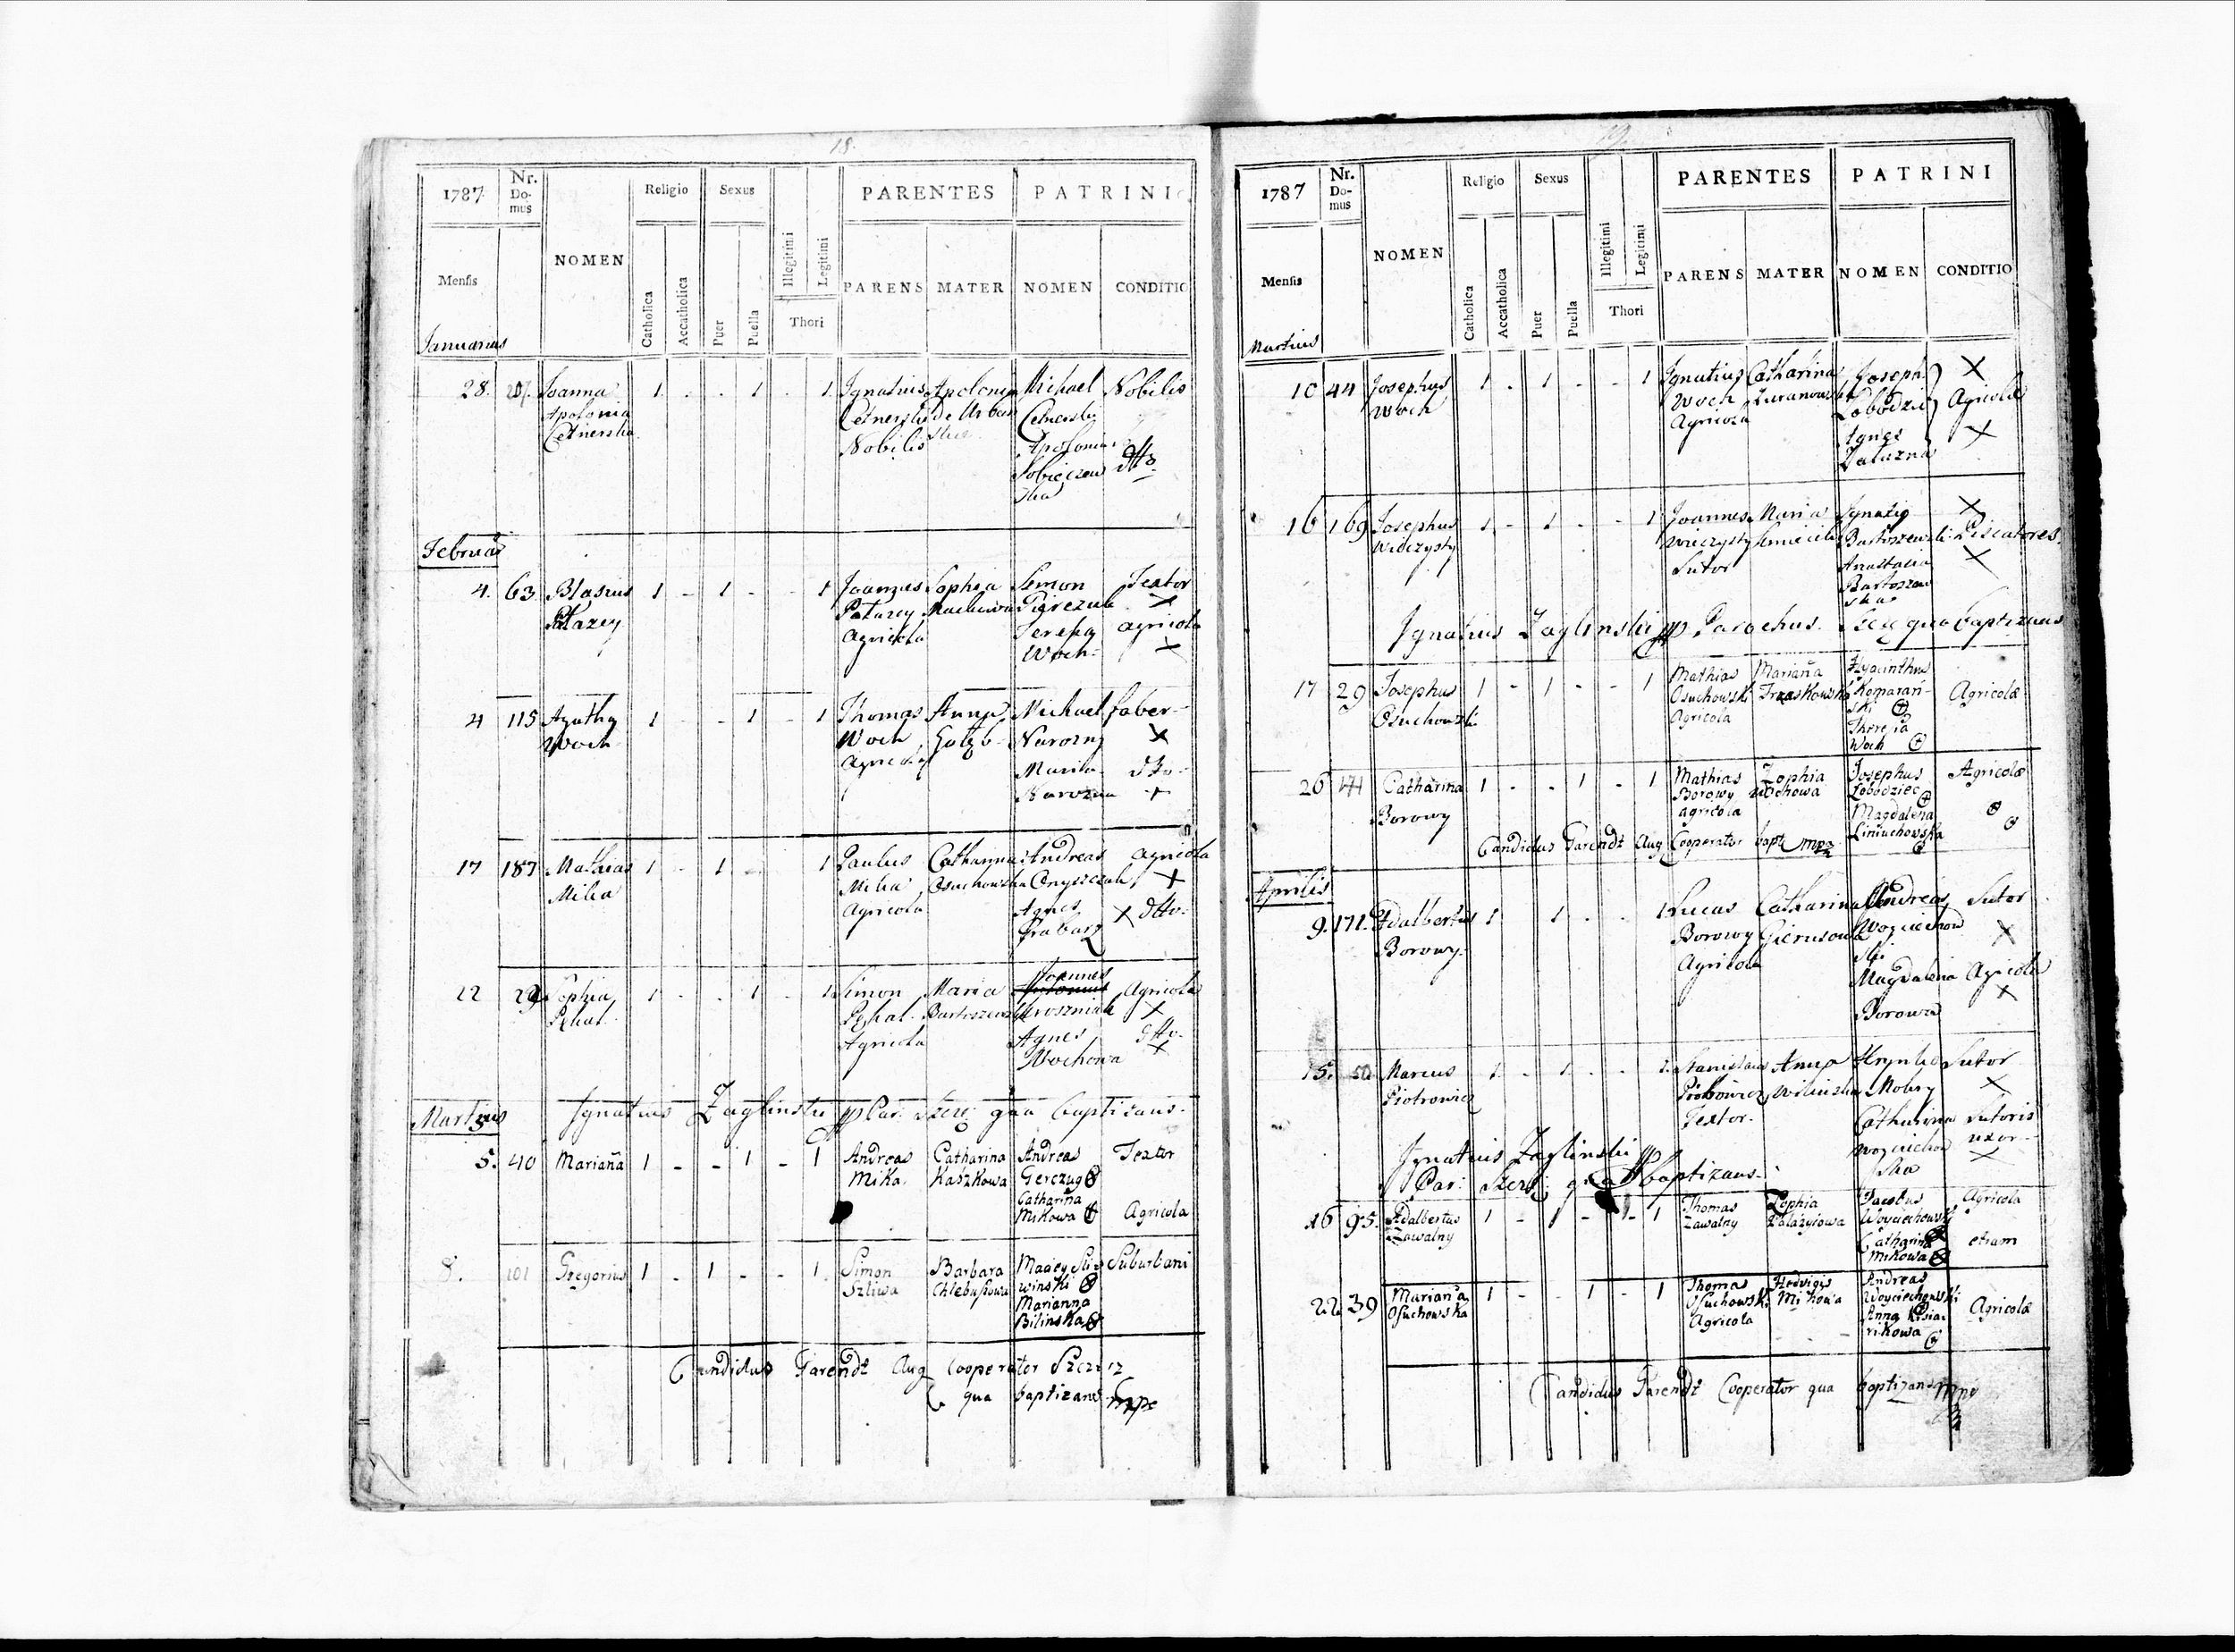 18.
1787.
Nr. Domus
NOMEN
Religio
Sexus
PARENTES
PATRINI
Mensis
Catholica
Accatholica
Puer
Puella
Illegitimi
Legitimi
Thori
PARENS
MATER
NOMEN
CONDITIO
Januarius
28. Joanna 1 . . 1 . 1 Ignatius Apolonia Michael Nobilis
Apolonia Cetnerski de Urban
Cetnerska Nobilis ska Cetnerski
Apolonia
Sobieczew dtto
ska
Februar
4. 63 Blasius 1 - 1 - - 1 Joannes Sophia Simon Textor
Patazey
Agricola Teresia agricola
Woch X
4 115 Agatha 1 - - 1 - 1 Thomas Anna Michael faber
Woch Woch Narozny X
Agricola Maria dto
Narozna +
17 187 Mathias 1 - 1 - - 1 Paulus Catharina Andreas agricola
Mika Mika Osuchowska Onyszczak X
Agricola Agnes X dtto
Grabarz
22 29 Sophia 1 - - 1 - 1 Simon Maria Joannes Agricola
Pękal Pękal X
Agricola Agnes dtto
Wochowa X
Martius Ignatius Zaglinski Par: Szcze: qua baptizans.
5. 40 Mariana 1 - - 1 - 1 Andreas Catharina Andreas Textor
Mika Kaszkowa Gerczug
Catharina
Mikowa Agricola
8. 101 Gregorius 1 - 1 - - 1 Simon Barbara Maciey Sli Suburbani
Szliwa Chlebusowa winski
Marianna
Bilinska
Candidus Garendt Aug Cooperator Szczerz
qua baptizans mpr
19.
1787
Nr. Domus
NOMEN
Religio
Sexus
PARENTES
PATRINI
Mensis
Catholica
Accatholica
Puer
Puella
Illegitimi
Legitimi
Thori
PARENS
MATER
NOMEN
CONDITIO
Martius
10 44 Josephus 1 - 1 - - 1 Ignatius Catharina Joseph X
Woch Woch Łobodzie Agricolæ
Agricola Agnes X
16 169 Josephus 1 - 1 - - 1 Joannes Maria Ignatio X
Wieczysty Wieczysty Bartoszewski Piscatores
Sutor Anastasia X
Bartoszew
ska
Ignatius Zaglinski Parochus. Szcz qua baptizans
17 29 Josephus 1 - 1 - - 1 Mathias Mariana Hyacinthus
Osuchowski Osuchowski Trzaskowska Komaran- Agricolæ
Agricola ski
Theresia
Woch
26 171 Catharina 1 - - 1 - 1 Mathias Zophia Josephus Agricolæ
Borowy Borowy Wochowa Lobodziec
agricola Magdalena
Liniuchowska
Candidus Garendt Aug Cooperator bapt mpr
Aprilis
9. 171. Adalbertus 1 1 - - 1 Lucas Catharina Andreas Sutor
Borowy Borowy Gierusowa Woyciechow X
Agricola ski
Magdalena Agricola
Borowa X
15. 50. Marcus 1 - 1 - - 1. Stanislaus Anna Hrynko Sutor
Piotrowicz Piotrowicz Wilinska Mokry X
Textor. Catharina sutoris
Woyciechow uxor
ska X
Ignatius Zaglinski
Par: Szcze: qua baptizans.
16 95. Adalbertus 1 - 1 - - 1 Thomas Zophia Jacobus Agricola
Zawalny Zawalny Palazyiowa Woyciechowski
Catharina etiam
Mikowa
22 39 Mariana 1 - - 1 - 1 Thomas Hedvigis Andreas
Osuchowska Osuchowski Mikowa Woyciechowski
Agricola Anna Agricolæ
rikowa
Candidus Garendt Cooperator qua baptizans mpr